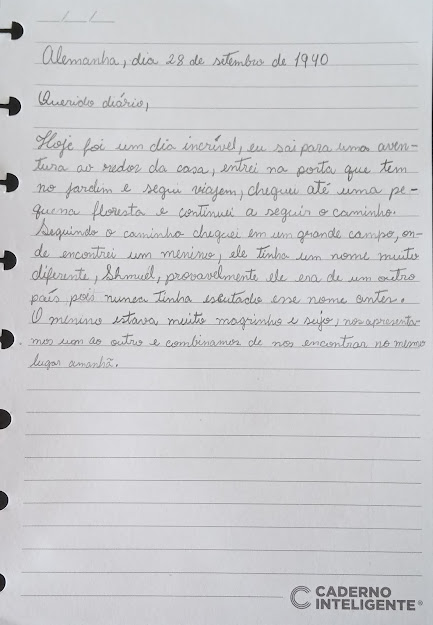 __/__/__
Alemanha, dia 28 de setembro de 1940
Querido diário,
Hoje foi um dia incrível, eu sai para uma aven-
tura ao redor da casa, entrei na porta que tem
no jardim e segui viajem, cheguei até uma pe-
quena floresta e continuei a seguir o caminho.
Seguindo o caminho cheguei em um grande campo, on-
de encontrei um menino, ele tinha um nome muito
diferente, Shmuel, provavelmente ele era de um outro
país pois nunca tinha escutado esse nome antes.
O menino estava muito magrinho e sujo, nos apresenta-
mos um ao outro e combinamos de nos encontrar no mesmo
lugar amanhã.
CADERNO
INTELIGENTE®